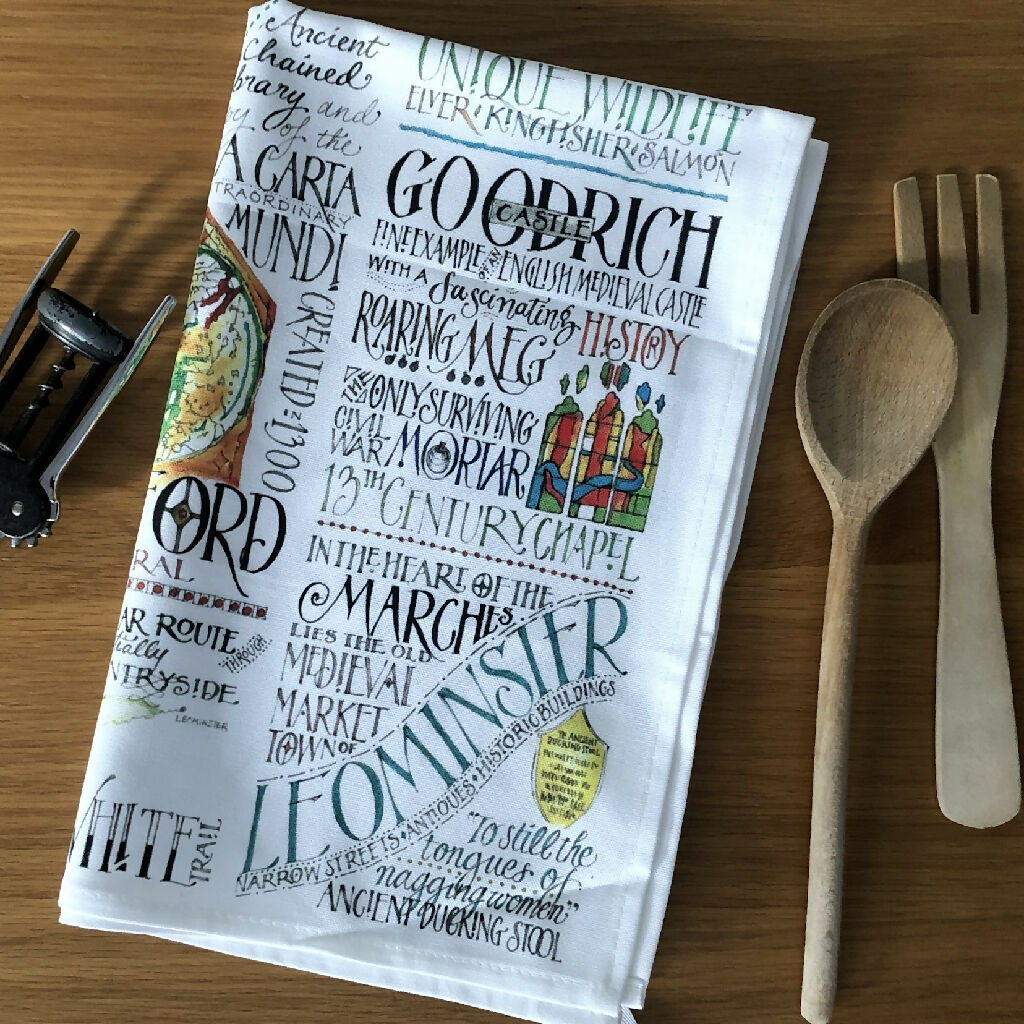 Ancient
Chained
brary and
of the
A CARTA
TRAORDINARY
MUNDI
CREATED IN 1300
ORD
RAL
AR ROUTE
THROUGH
ially
NTRYSIDE
LEOMINSTER
WHITE
TRAIL
UNIQUE WILDLIFE
ELVER KINGFISHER & SALMON
GOODRICH
CASTLE
FINE EXAMPLE OF AN ENGLISH MEDIEVAL CASTLE
WITH A fascinating HISTORY
ROARING MEG
THE ONLY SURVIVING
CIVIL WAR MORTAR
13TH CENTURY CHAPEL
IN THE HEART OF THE
MARCHES
LIES THE OLD
MEDIEVAL
MARKET
TOWN OF
LEOMINSTER
NARROW STREETS • ANTIQUES • HISTORIC BUILDINGS
"To still the
tongues of
nagging women"
ANCIENT DUCKING STOOL